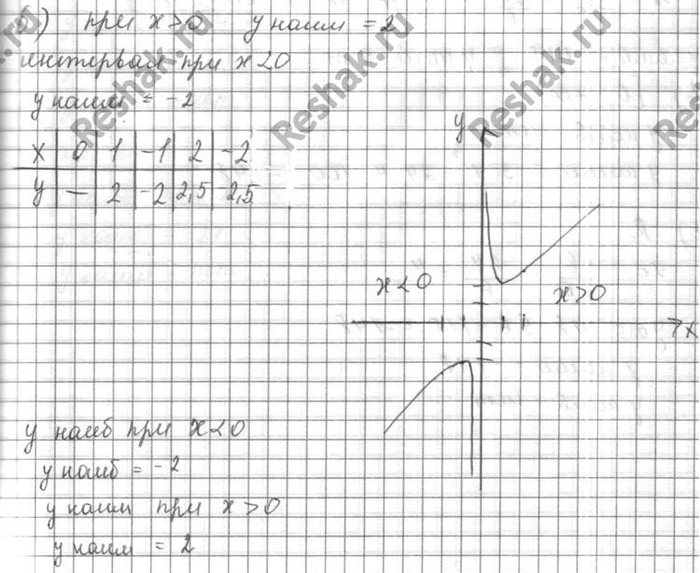 б) при x>0 y наим = 2
интервал при x<0
y наим = -2
x 0 1 -1 2 -2
y — 2 -2 2,5 -2,5
y
x<0
x>0
x
y наиб при x<0
y наиб = -2
y наим при x>0
y наим = 2
Reshak.ru
Reshak.ru
Reshak.ru